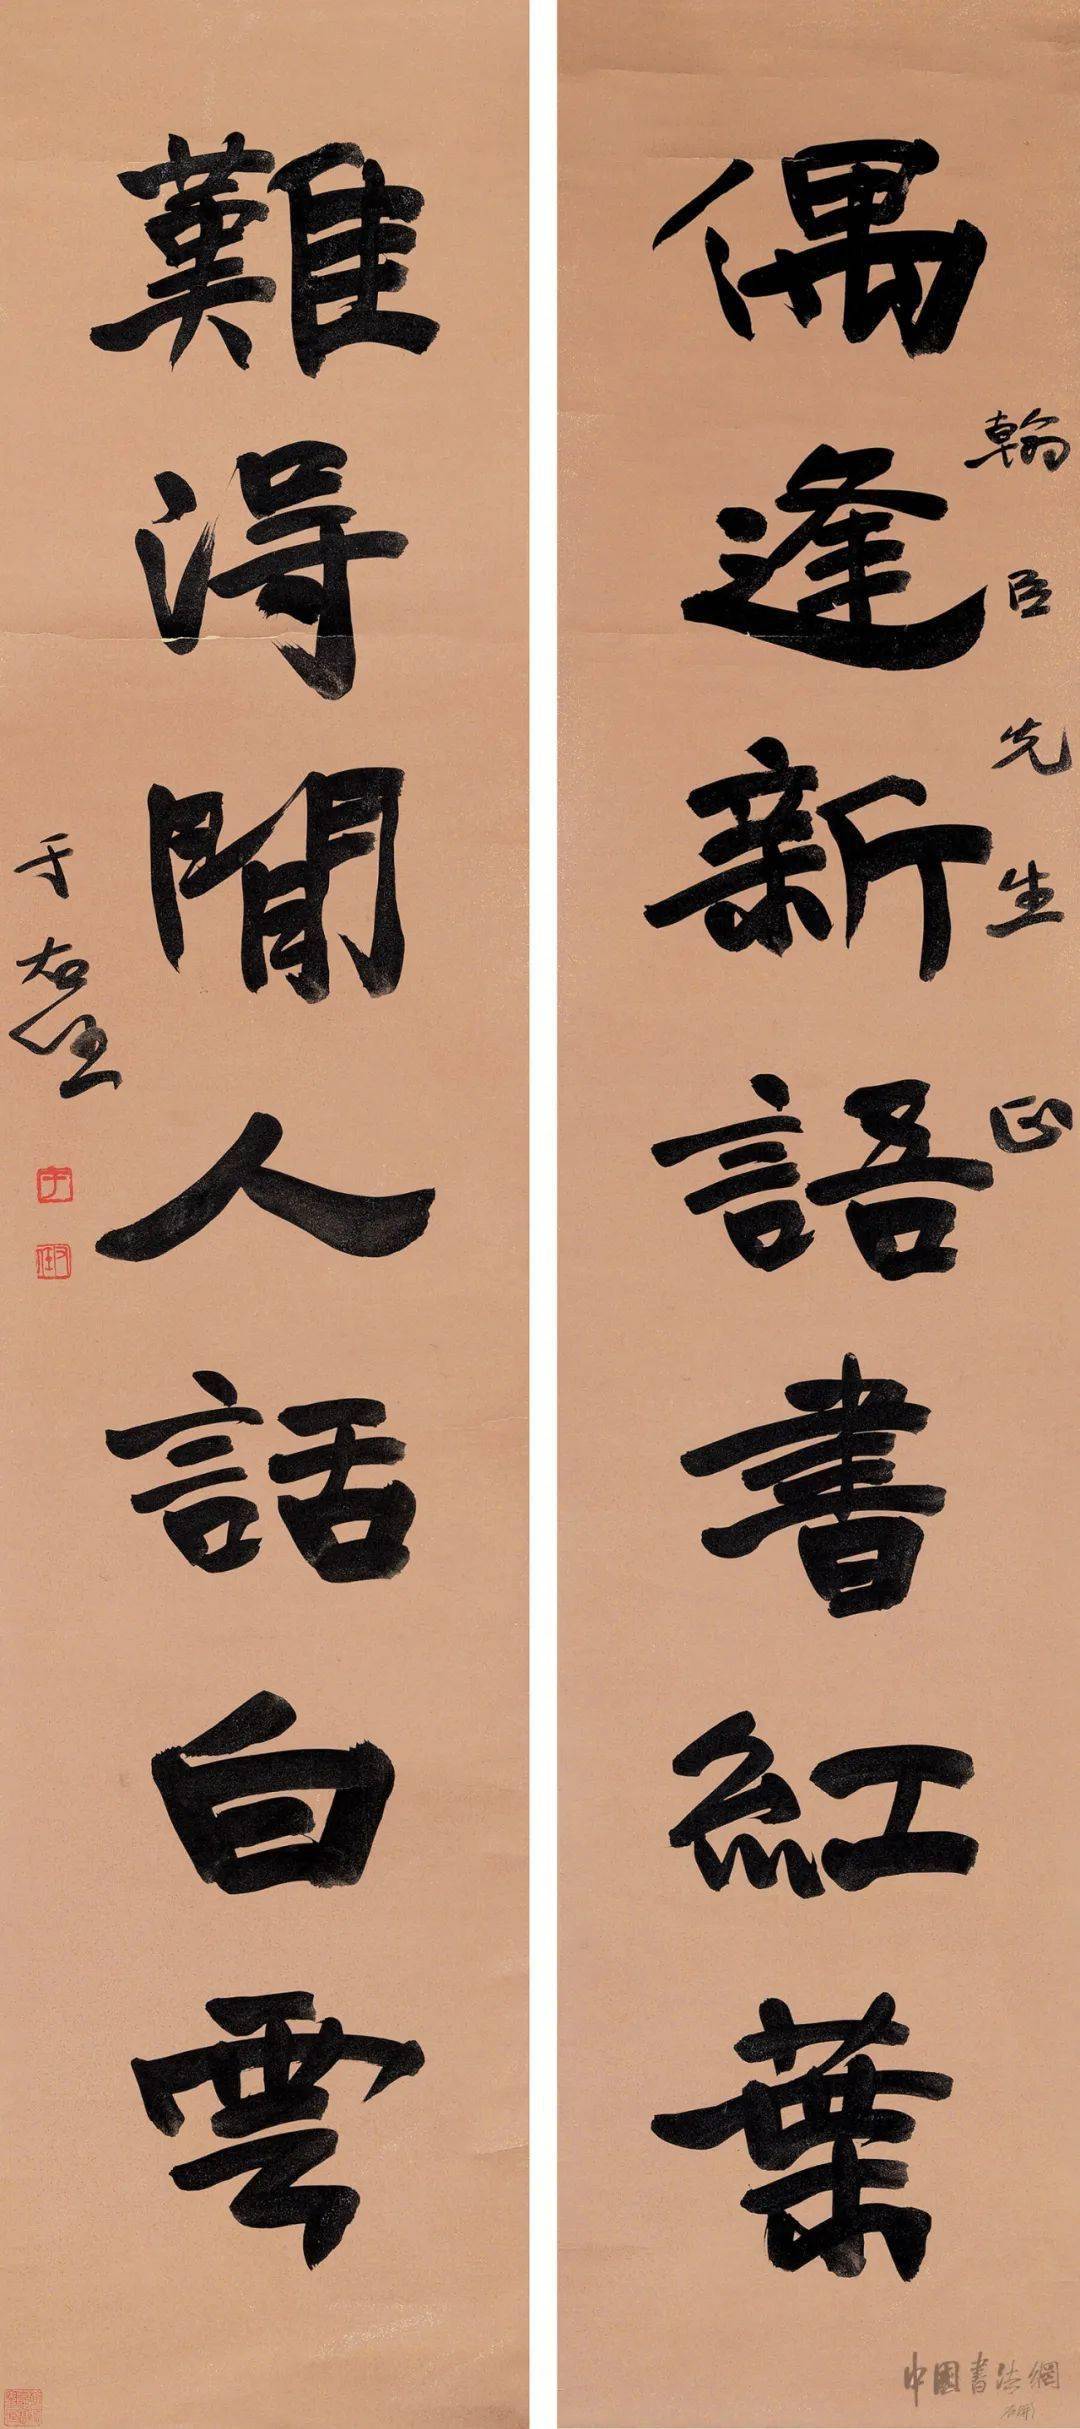 偶逢新語書紅葉
翰臣先生正
難得閒人話白雲
于右任
中國書法網